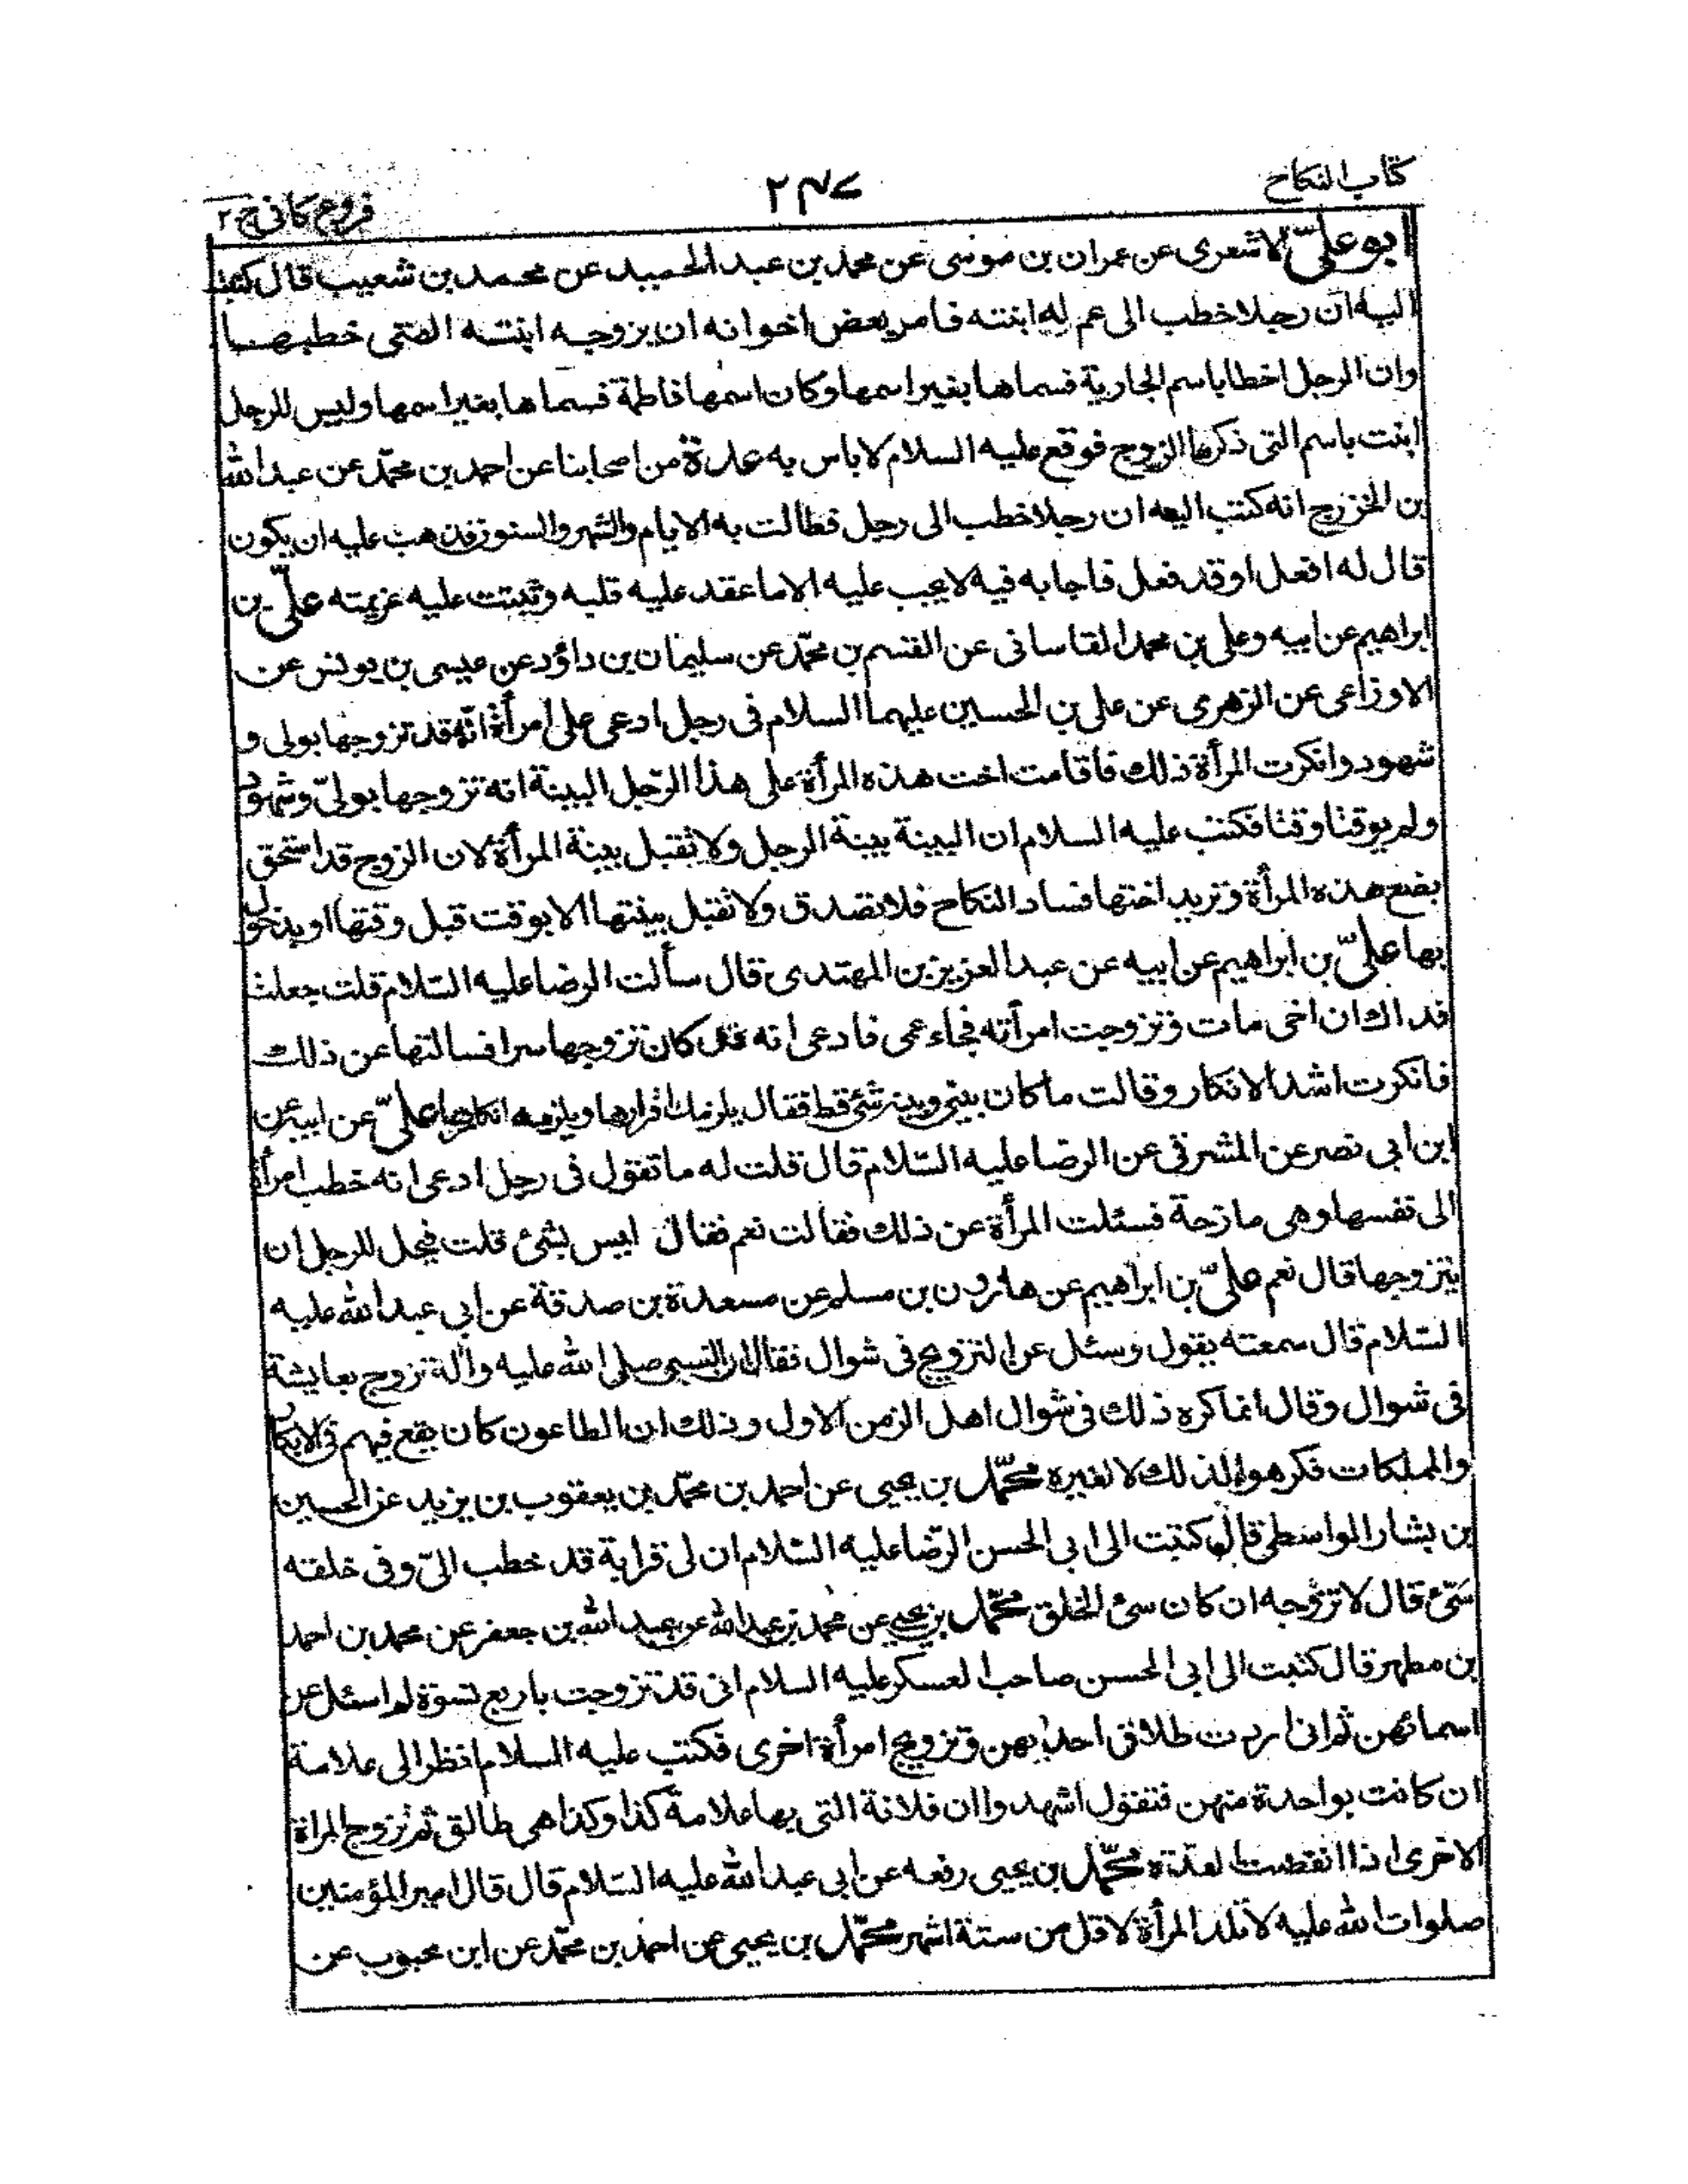 كتاب النكاح
٢٤٧
فروع كافى ج ٢
ابو علىّ الاشعرى عن عمران بن موسى عن محمد بن عبد الحميد عن محمد بن شعيب قال كتبت
اليه ان رجلا خطب الى عم له ابنته فامر بعض اخوانه ان يزوجه ابنته التى خطبها
وان الرجل اخطا باسم الجارية فسماها بغير اسمها وكان اسمها فاطمة فسماها بغير اسمها وليس للرجل
ابنت باسم التى ذكرها الزوج فوقع عليه السلام لا باس به عدة من اصحابنا عن احمد بن محمّد عن عبد الله
بن الخزرج انه كتب اليه ان رجلا خطب الى رجل فطالت به الايام والشهور والسنون فذهب عليه ان يكون
قال له افعل او قد فعل فاجابه فيه لا يجب عليه الا ما عقد عليه قلبه وثبتت عليه عزيمته علىّ بن
ابراهيم عن ابيه وعلى بن محمد القاسانى عن القسم بن محمّد عن سليمان بن داؤد عن عيسى بن يونس عن
الاوزاعى عن الزهرى عن على بن الحسين عليهما السلام فى رجل ادعى على امرأة انّه قد تزوجها بولى و
شهود وانكرت المرأة ذلك فاقامت اخت هذه المرأة على هذا الرجل البينة انه تزوجها بولىّ وشهود
ولم يوقتا وقتا فكتب عليه السلام ان البينة بينة الرجل ولا تقبل بينة المرأة لان الزوج قد استحق
بضع هذه المرأة وتريد اختها فساد النكاح فلا تصدق ولا تقبل بينتها الا بوقت قبل وقتها او بدخول
بها علىّ بن ابراهيم عن ابيه عن عبد العزيز بن المهتدى قال سألت الرضا عليه السّلام قلت جعلت
فداك ان اخى مات وتزوجت امرأته فجاء عمى فادعى انه قد كان تزوجها سرا فسالتها عن ذلك
فانكرت اشد الانكار وقالت ما كان بينى وبينه شئ قط فقال يلزمك اقرارها ويلزمه انكارها علىّ عن ابيه عن
ابن ابى نصر عن المشرقى عن الرضا عليه السّلام قال قلت له ما تقول فى رجل ادعى انه خطب امرأة
الى نفسها وهى مازحة فسئلت المرأة عن ذلك فقالت نعم فقال ليس بشئ قلت فيحل للرجل ان
يتزوجها قال نعم علىّ بن ابراهيم عن هارون بن مسلم عن مسعدة بن صدقة عن ابى عبد الله عليه
السّلام قال سمعته يقول وسئل عن التزويج فى شوال فقال ان النبى صلى الله عليه وآله تزوج بعايشة
فى شوال وقال انما كره ذلك فى شوال اهل الزمن الاول وذلك ان الطاعون كان يقع فيهم فى الابكار
والمملكات فكرهوه لذلك لا لغيره محمّد بن يحيى عن احمد بن محمّد بن يعقوب بن يزيد عن الحسين
بن بشار الواسطى قال كتبت الى ابى الحسن الرّضا عليه السّلام ان لى قرابة قد خطب الىّ وفى خلقه
سّئ قال لا تزوجه ان كان سئ الخلق محمّد بن يحيى عن محمد بن عبد الله عن عبد الله بن جعفر عن محمد بن احمد
بن مطهر قال كتبت الى ابى الحسن صاحب العسكر عليه السلام انى قد تزوجت باربع نسوة لم اسئل عن
اسمائهن ثم انى اردت طلاق احديهن وتزويج امرأة اخرى فكتب عليه السلام انظر الى علامة
ان كانت بواحدة منهن فتقول اشهدوا ان فلانة التى بها علامة كذا وكذا هى طالق ثم تزوج المراة
الاخرى اذا انقضت العدّة محمّد بن يحيى رفعه عن ابى عبد الله عليه السّلام قال قال امير المؤمنين
صلوات الله عليه لا تلد المرأة لاقل من ستة اشهر محمّد بن يحيى عن احمد بن محمّد عن ابن محبوب عن